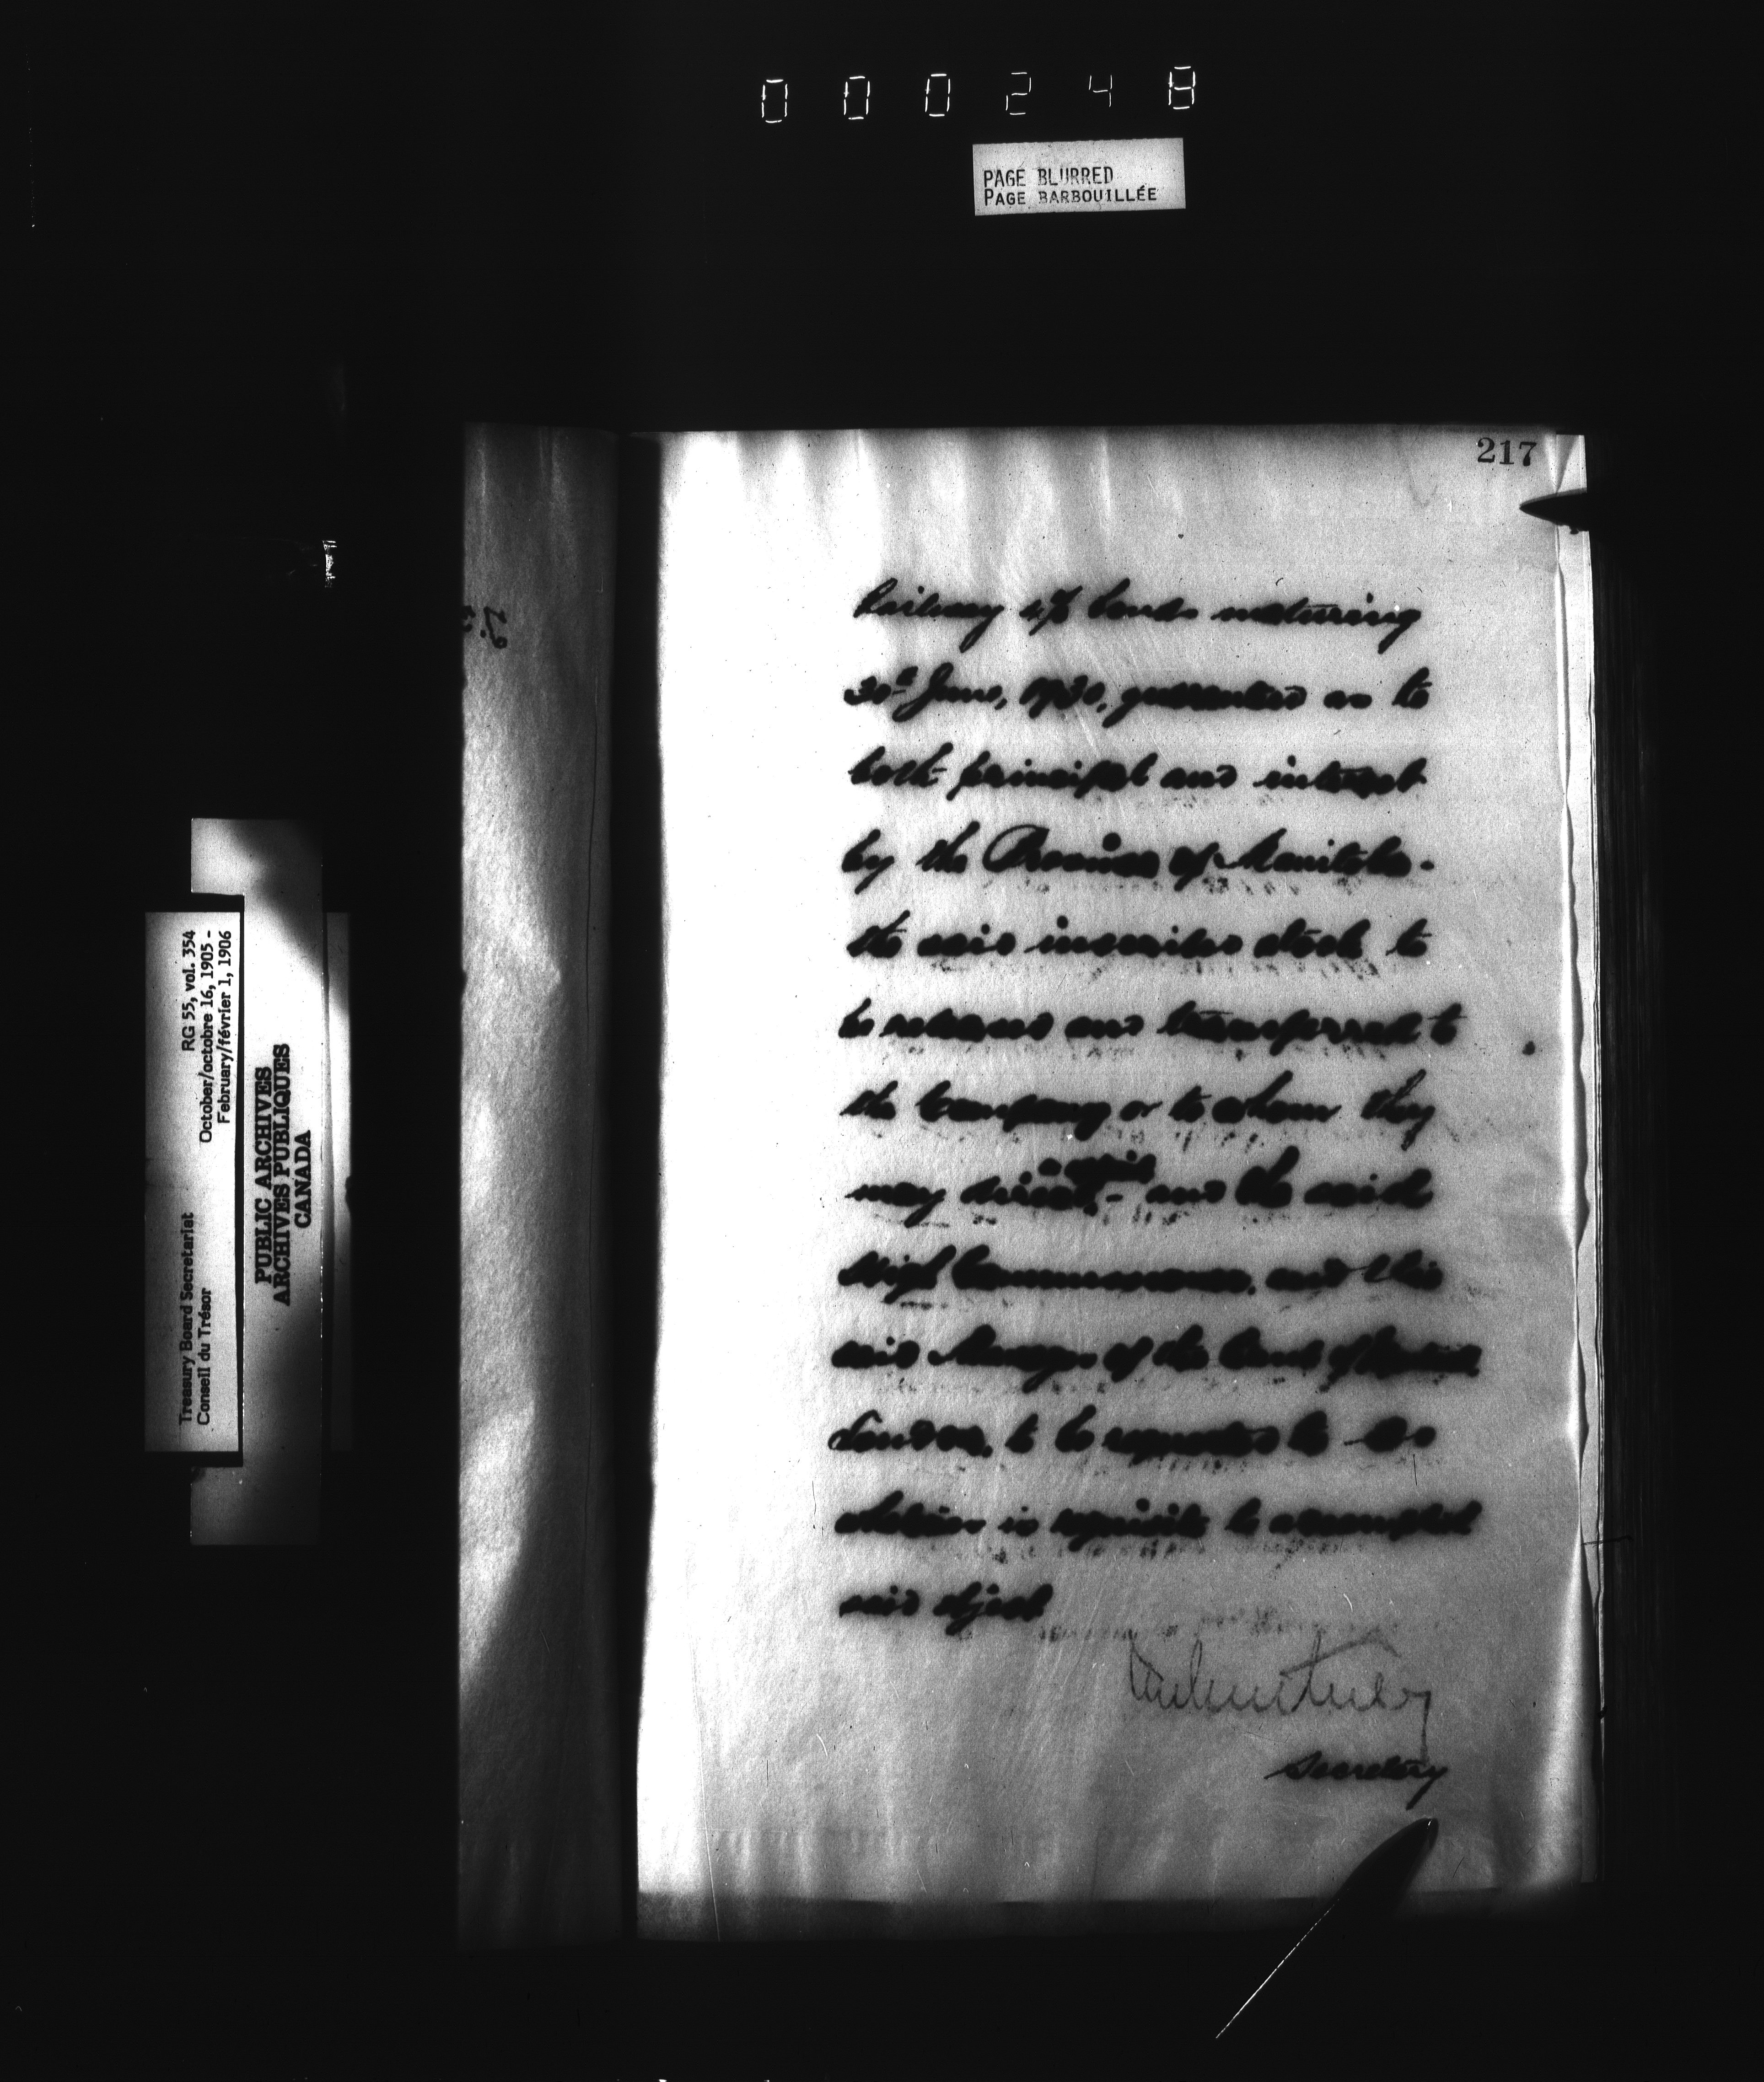 000248
PAGE BLURRED
PAGE BARBOUILLÉE
217
Railway 4% bonds maturing
30th June, 1930, guaranteed as to
both principal and interest
by the Province of Manitoba -
the said inscribed stock to
be released and transferred to
the Company or to whom they
may direct, - and the said
High Commissioner, and the
said Manager of the Bank of Montreal
London, to be requested to do
whatever is requisite to accomplish
said object
Secretary
Treasury Board Secretariat RG 55, vol. 354
Conseil du Trésor October/octobre 16, 1905 -
February/février 1, 1906
PUBLIC ARCHIVES
ARCHIVES PUBLIQUES
CANADA